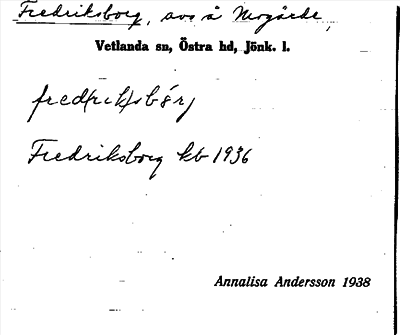 Fredriksborg, avs å Nergårde,
Vetlanda sn, Östra hd, Jönk. l.
fred(rik)sbórj
Fredriksborg kb 1936
Annalisa Andersson 1938